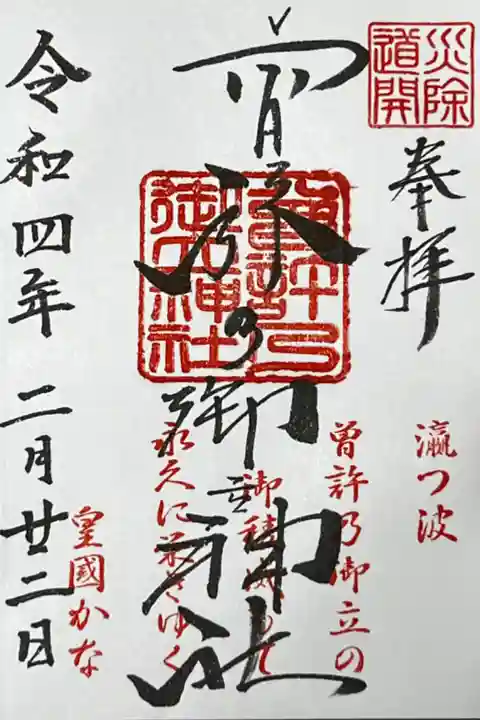 災除
道開
奉拝
曾許乃御立神社
曾許乃
御立神社
瀛つ波
曽許乃御立の
御稜威もて
永久に栄えゆく
皇國かな
令和四年二月廿二日